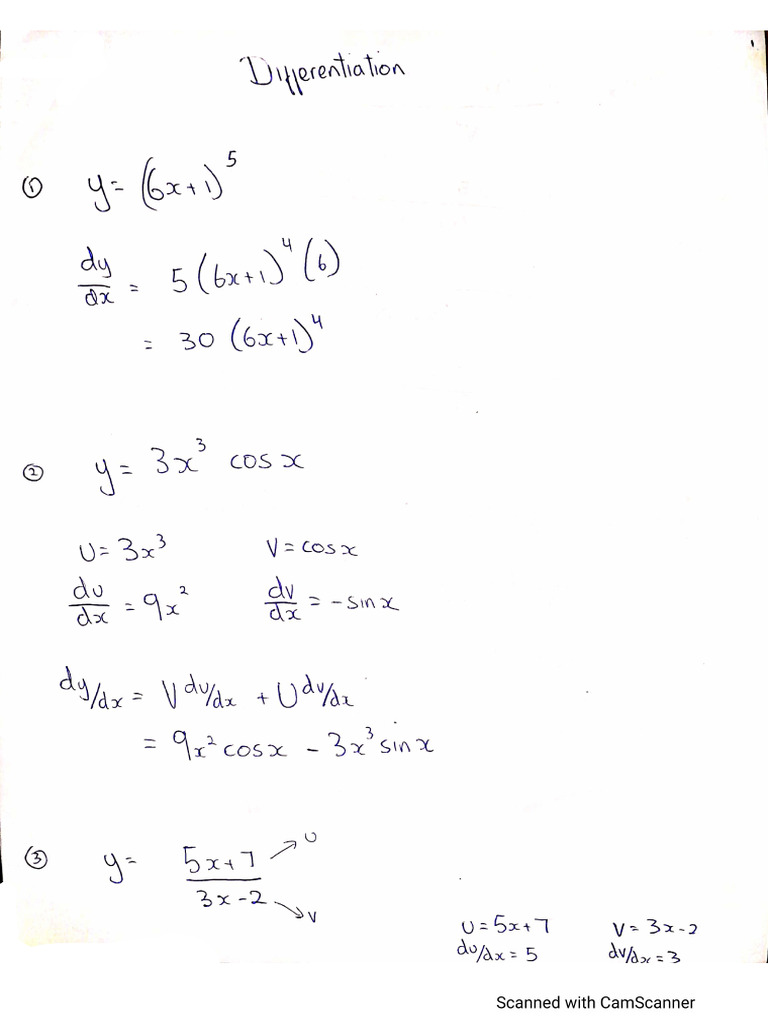 Differentiation
① y = (6x+1)^5
dy/dx = 5(6x+1)^4 (6)
= 30 (6x+1)^4
② y = 3x^3 cos x
U = 3x^3 V = cos x
du/dx = 9x^2 dv/dx = - sin x
dy/dx = V du/dx + U dv/dx
= 9x^2 cos x - 3x^3 sin x
③ y = (5x+7)/(3x-2) → U → V
U = 5x+7 V = 3x-2
du/dx = 5 dv/dx = 3
Scanned with CamScanner